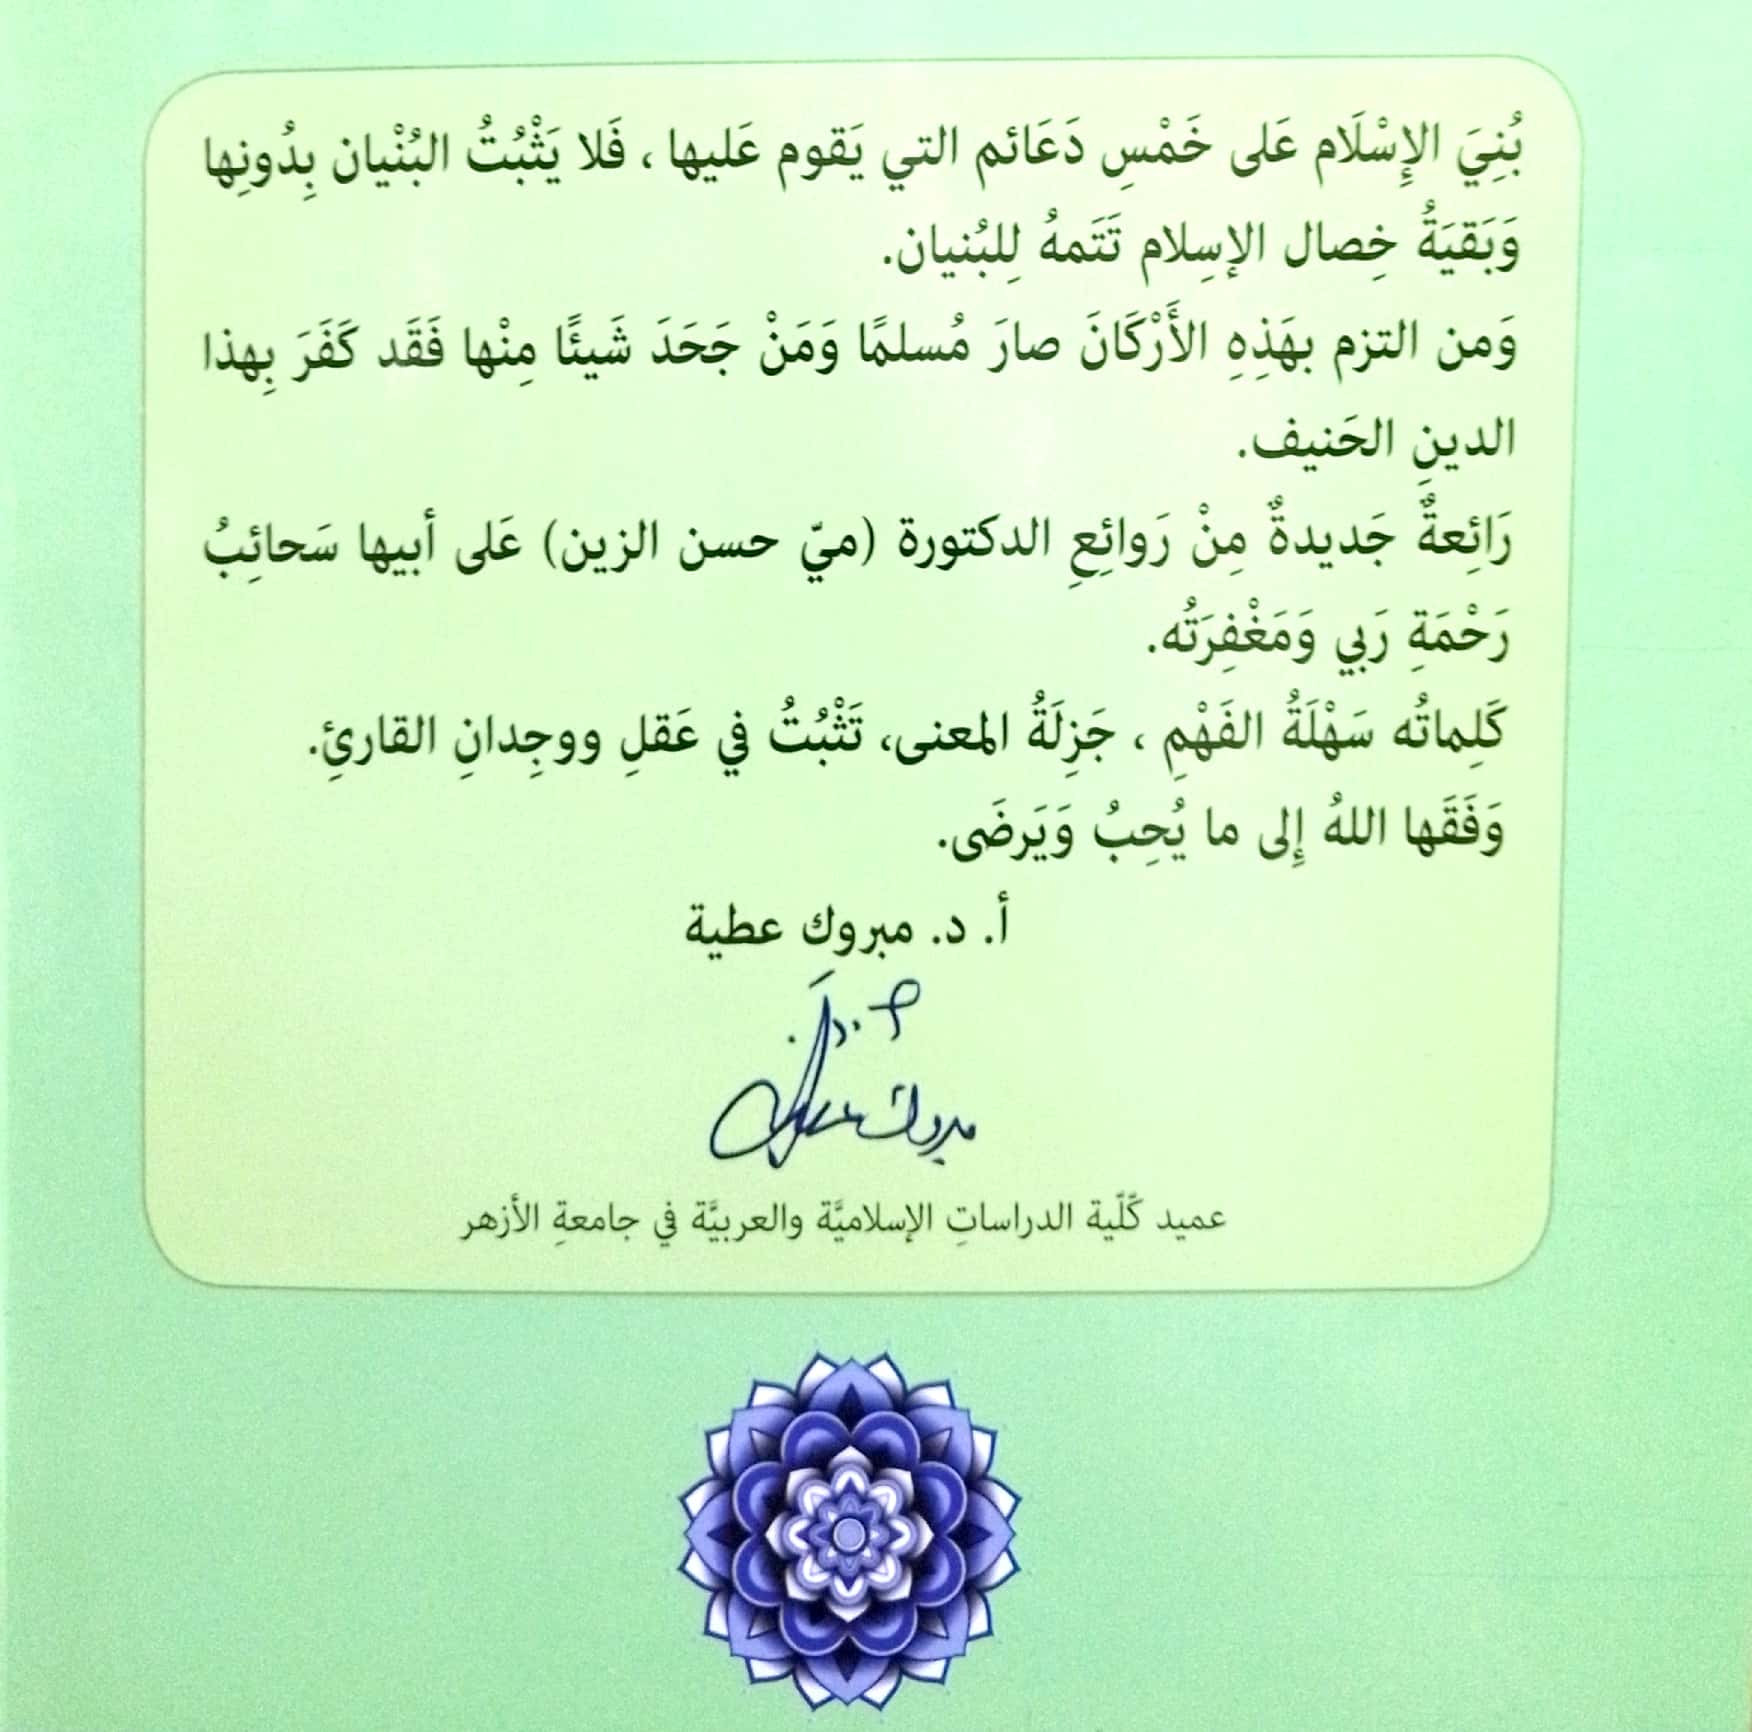 بُنِيَ الإِسْلَام عَلى خَمْسِ دَعَائم التي يَقوم عَليها ، فَلا يَثْبُتُ البُنْيان بِدُونِها
وَبَقيَةُ خِصال الإسِلام تَتَمهُ لِلبُنيان.
وَمن التزم بهَذِهِ الأَرْكَانَ صارَ مُسلمًا وَمَنْ جَحَدَ شَيئًا مِنْها فَقَد كَفَرَ بِهذا
الدينِ الحَنيف.
رَائِعةٌ جَديدةٌ مِنْ رَوائِعِ الدكتورة (ميّ حسن الزين) عَلى أبيها سَحائِبُ
رَحْمَةِ رَبي وَمَغْفِرَتُه.
كَلِماتُه سَهْلَةُ الفَهْمِ ، جَزِلَةُ المعنى، تَثْبُتُ في عَقلِ ووجِدانِ القارئِ.
وَفَقَها اللهُ إِلى ما يُحِبُ وَيَرضَى.
أ. د. مبروك عطية
أ. د.
مبروك عطية
عميد كّلّية الدراساتِ الإسلاميَّة والعربيَّة في جامعةِ الأزهر